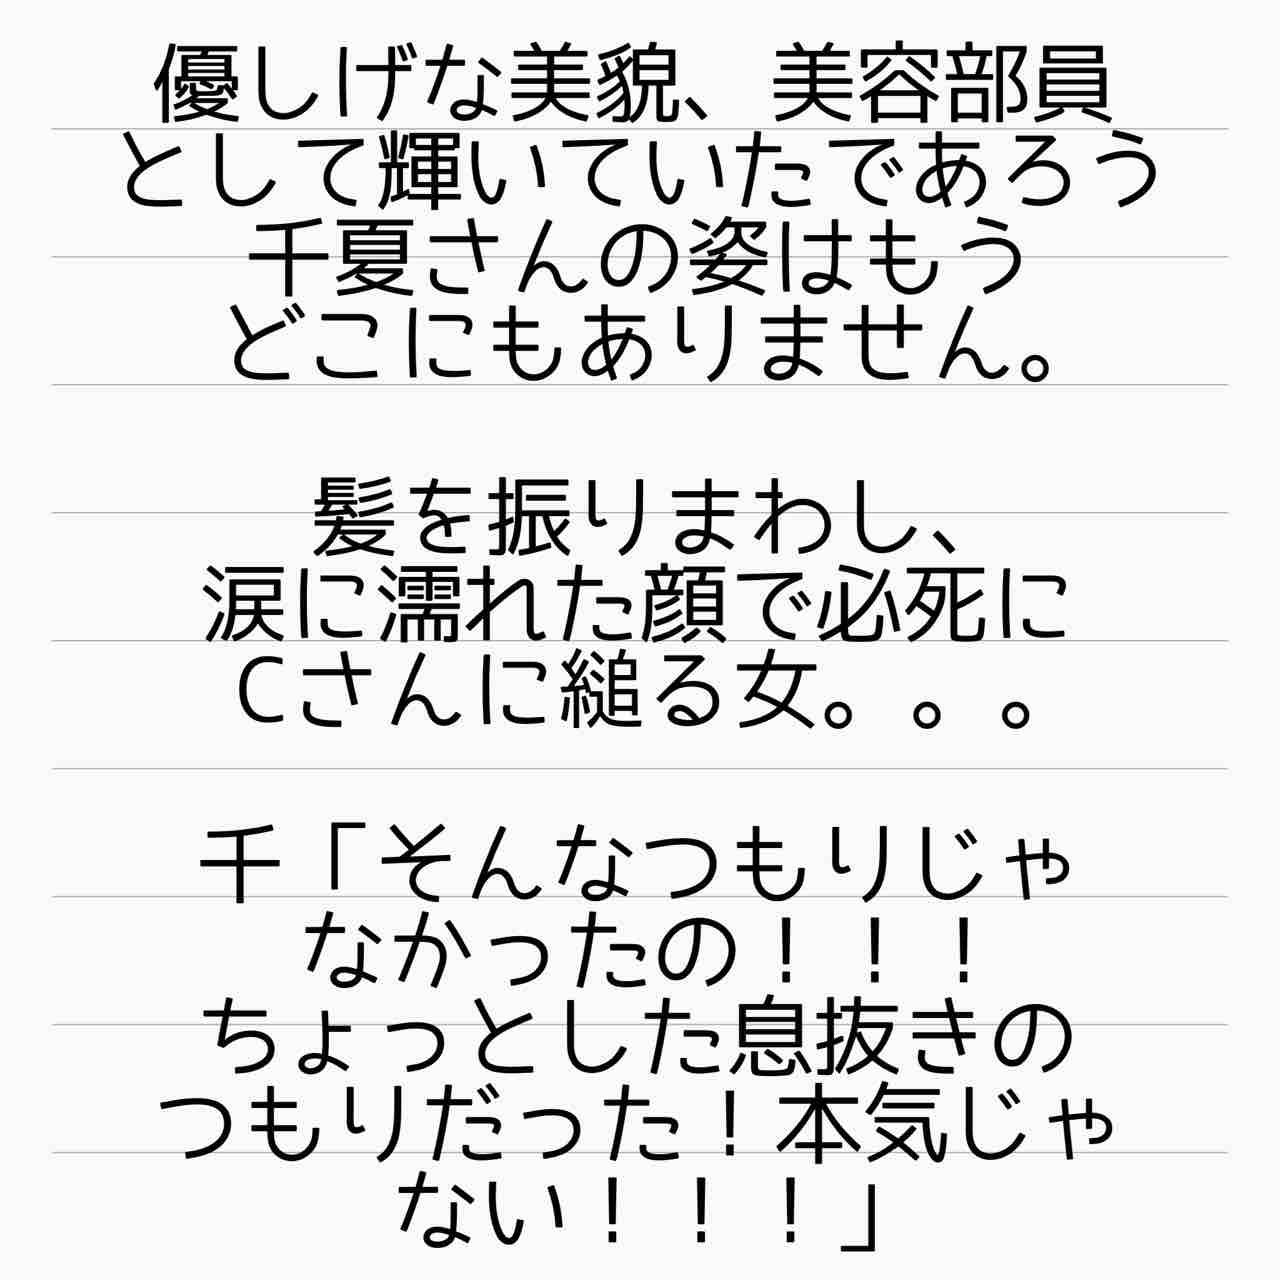 優しげな美貌、美容部員
として輝いていたであろう
千夏さんの姿はもう
どこにもありません。
髪を振りまわし、
涙に濡れた顔で必死に
Cさんに縋る女。。。
千「そんなつもりじゃ
なかったの！！！
ちょっとした息抜きの
つもりだった！本気じゃ
ない！！！」